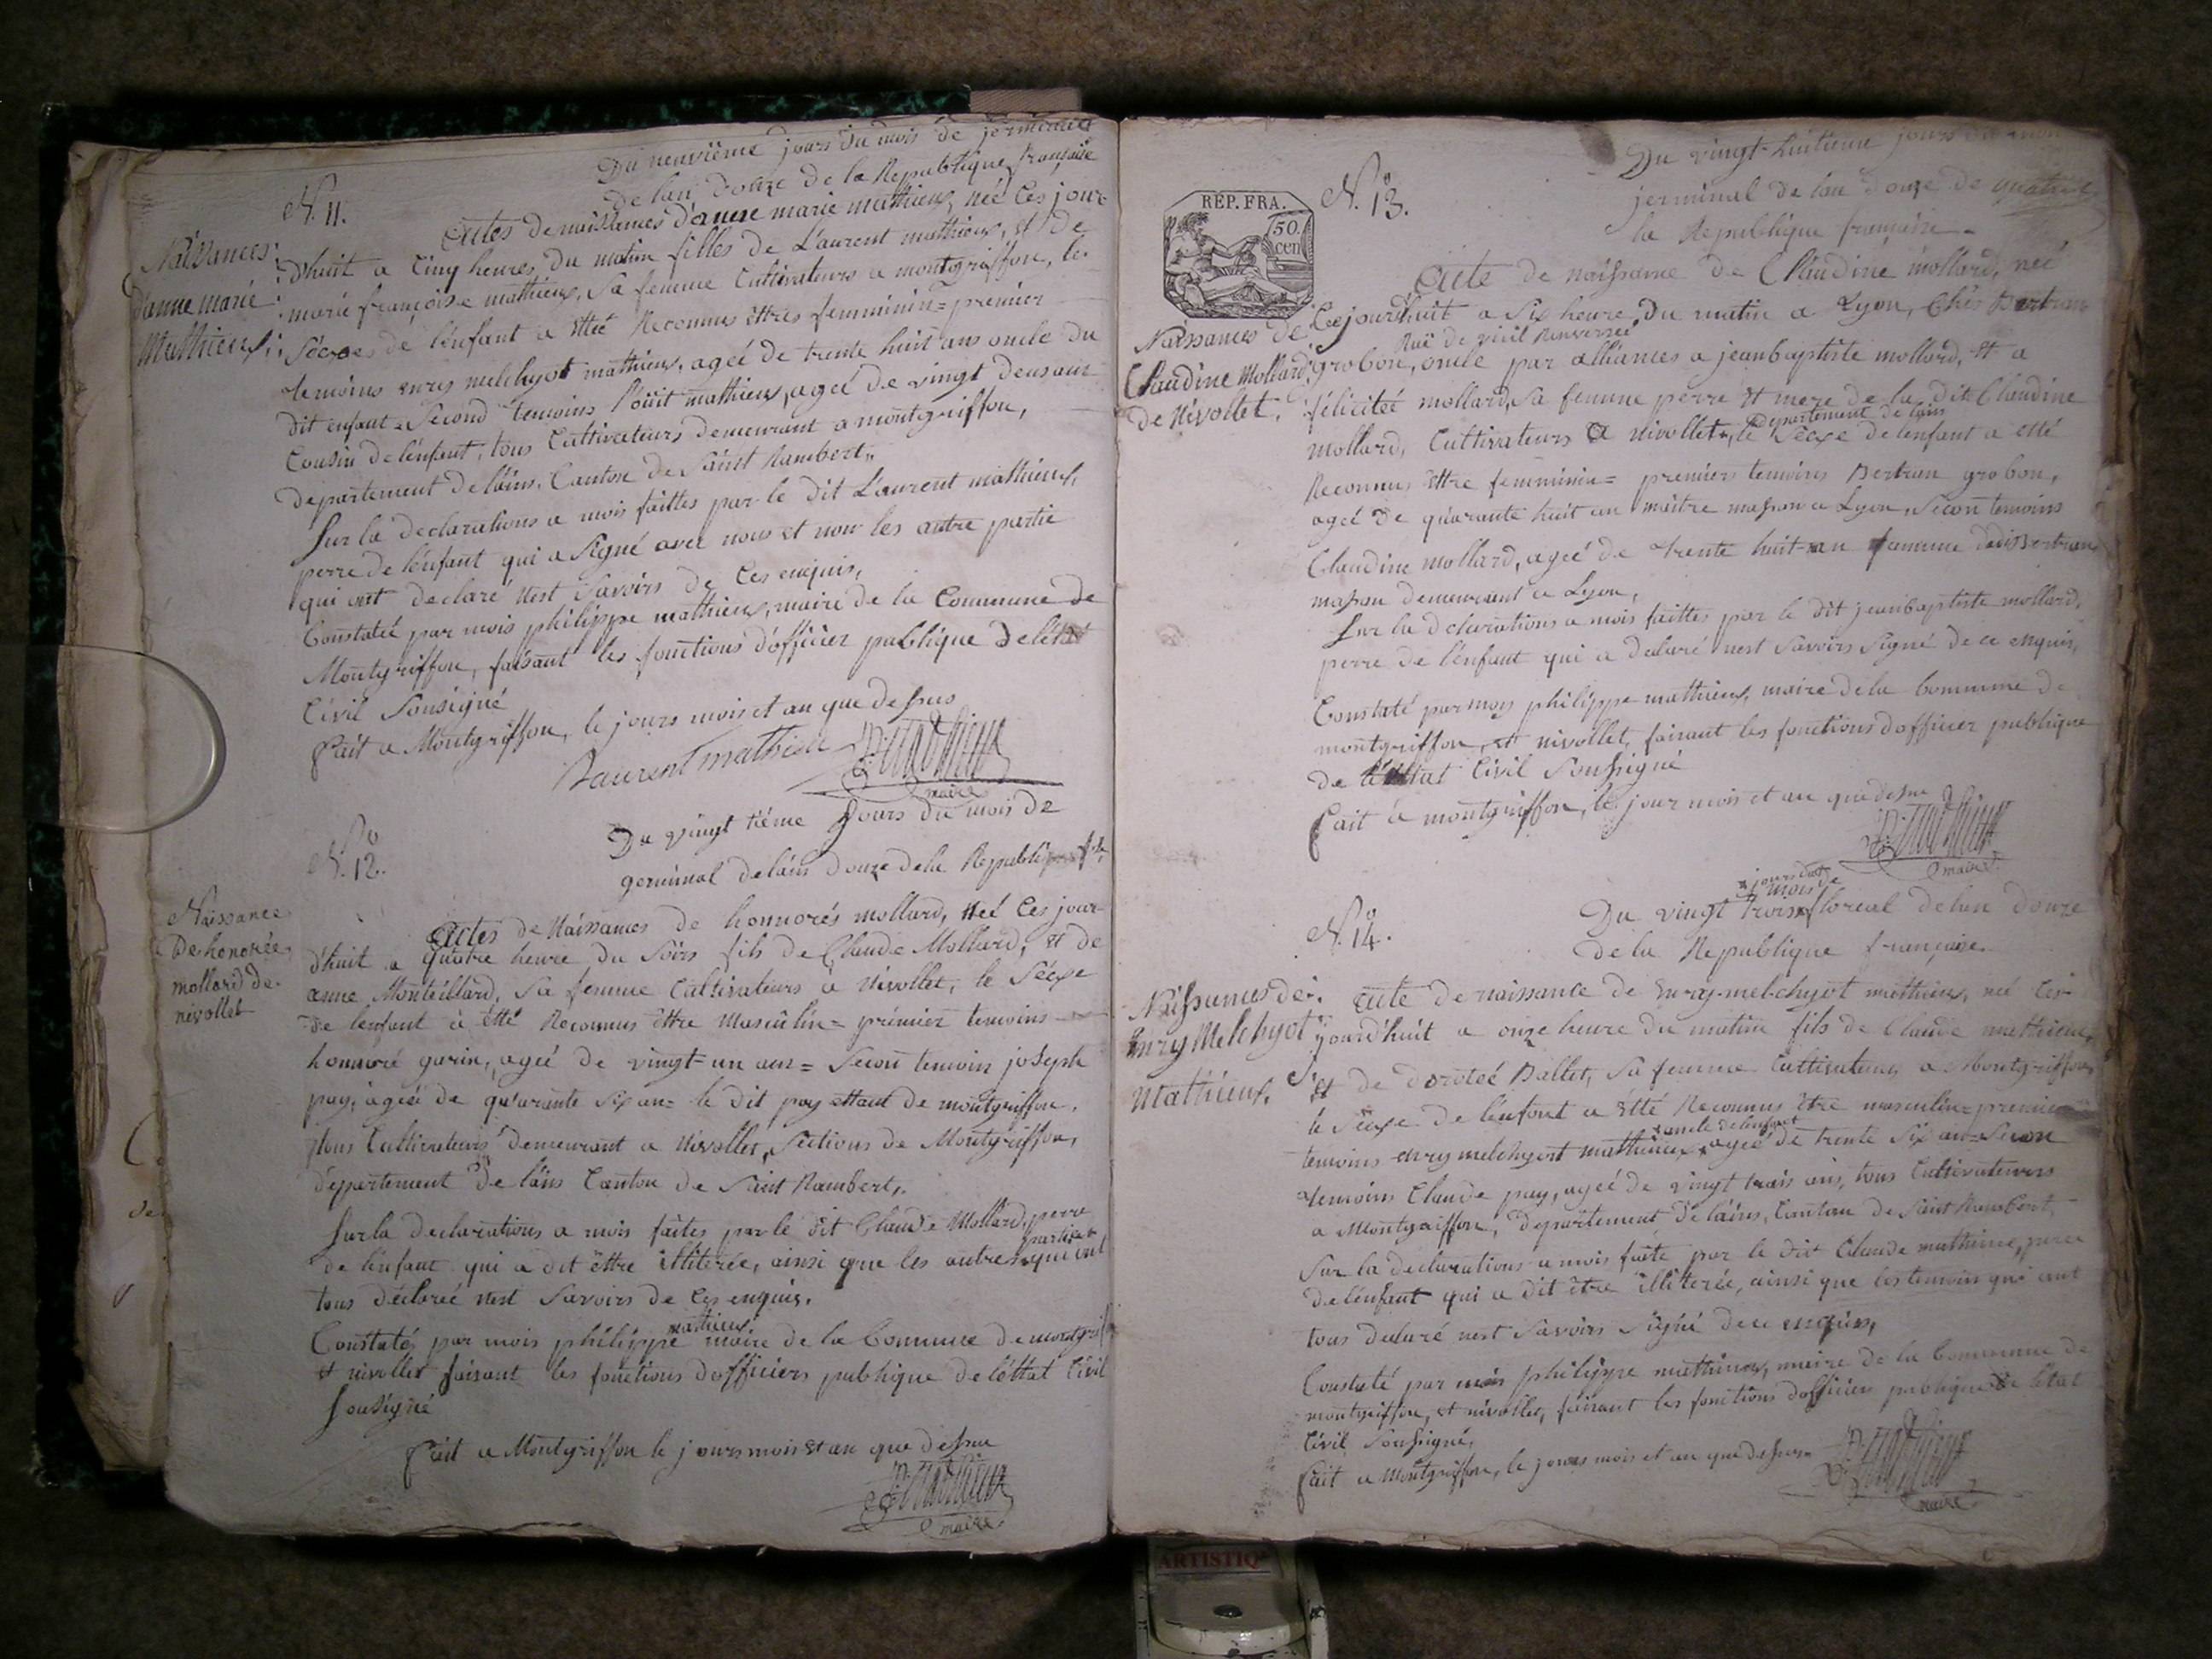 N.º 11.
Du neuvième jours du mois de jerminial
de lan douze de la Republique française
Naissances
d'anne marie
Mathieux
Actes de naissances d'anne marie mathieux, neé Ces jour
d'huit a Cinq heures du matin filles de Laurent mathieux, et de
marie françoise mathieux, Sa femme Cultivateurs a montgriffon, le
Sécxe de lénfant a étteé Reconnus ettres femminin = premier
temoins enrys melchyot mathieux, ageé de trente huit ans oncle du
dit enfant = Second temoins Loüit mathieux, ageé de vingt deus ans
Cousin de lénfant, tous Cultivateurs demeurant a montgriffon,
departement de láins, Canton de Saint Rambert,,
Sur la declarations a mois faittes par le dit Laurent mathieux,
perre de lénfant qui a Signé avec nous et non les autre partie
qui ont declaré nest Savoirs de Ces enquis,
Constateé par mois philippe mathieux, maire de la Commune de
Montgriffon, faisant les fonctions d'officier publique de létat
Civil Sousigné
fait a Montgriffon, le jours mois et an que dessus
Laurent mathieu
maire
N.º 12.
Du vingt tiéme Jours du mois de
germinal de láin douze de la Republique
Naissance
De honorée
mollard de
nivollet
Actes de Naissances de honnorés mollard, Neé Ces jour
d'huit a quatre heure du Soirs fils de Claude Mollard, et de
anne Monteillard, Sa femme Cultivateurs a Nivollet, le Sécxe
de lenfant à étté Reconnus ettre Masculin = prémier temoins
honnoré garin, ageé de vingt = un ans = Secon temoin joseph
pay, ageé de quarante Six an = le dit pay ettant de montgriffon,
tous Cultivateurs demeurant a Nivollet, Sections de Montgriffon,
département de láins Canton de Saint Rambert,
Sur la declarations a mois faites par le dit Claude Mollard, perre
de lénfant qui a dit éttre illiterée, ainsi que les autres partie qui ont
tous déclareé nest Savoirs de Ces enquis,
Constatés par mois philippe mathieux maire de la Commune de montgrif
et nivollet faisant les fonctions d'officiers publique de léttat Civil
Sousigné
fait a Montgriffon le jours mois et an que dessus
maire
REP. FRA.
50.
cen
N.º 13.
Du vingt-huitieme jours du mois
jerminal de lan douze de quatre
la Republique française
Naissances de
Claudine Mollard
de Nivollet.
Acte de naissance de Claudine mollard, neé
Cejourd'huit a Six heure du matin a Lyon, Chés Bertran
Ruë de vieil Renversée
grobon, oncle par alliances a jeanbaptiste mollard, et a
féliciteé mollard, Sa femme perre et mere de la dit Claudine
mollard, Cultivateurs a nivollet, departement de lain le Sécxe de lenfant a etté
Reconnus ettre femminin = premiers temoins Bertran grobon,
ageé de quarante huit an maitre masson a Lyon, Secon temoins
Claudine mollard, ageé de trente huit an femme dudis Bertran
masson demeurant a Lyon,
Sur la declarations a mois faittes par le dit jeanbaptiste mollard,
perre de l'enfant qui a declaré nest Savoirs Signé de ce enquis,
Constaté par moy philippe mathieux, maire de la Commune de
montgriffon, et nivollet, faisant les fonctions d'officier publique
de léttat Civil Sousigné
fait à montgriffon, le jour mois et an que dessus
maire
N.º 14.
Du vingt trois jours du mois de floreal de lan douze
de la Republique française.
Naissances de
Enry Melchyot
Mathieux.
Acte de naissance de Enry-melchyot mathieux, neé Ces
jourd'huit a onze heure du matin fils de Claude mathieux,
et de doroteé Ballet, Sa femme Cultivateurs a Montgriffon
le Sécxe de lénfant a étté Reconnus étre masculin = premier
temoins enry melchyot mathieux, oncle de lenfant ageé de trente Six an = Secon
temoins Claude pay, ageé de vingt trois ans, tous Cultivateurs
a Montgriffon, departement de láins, Canton de Saint Rambert,
Sur la declarations a mois faite par le dit Claude mathieux, perre
de lénfant qui a dit être illiterée, ainsi que les temoin qui ont
tous declaré nest Savoirs Signé de ce enquis,
Constaté par mois philippe mathieux, maire de la Commune de
montgriffon, et nivollet, faisant les fonctions dofficier publique de létat
Civil Sousigné,
fait a Montgriffon, le jours mois et an que dessus
maire
ARTISTIQ